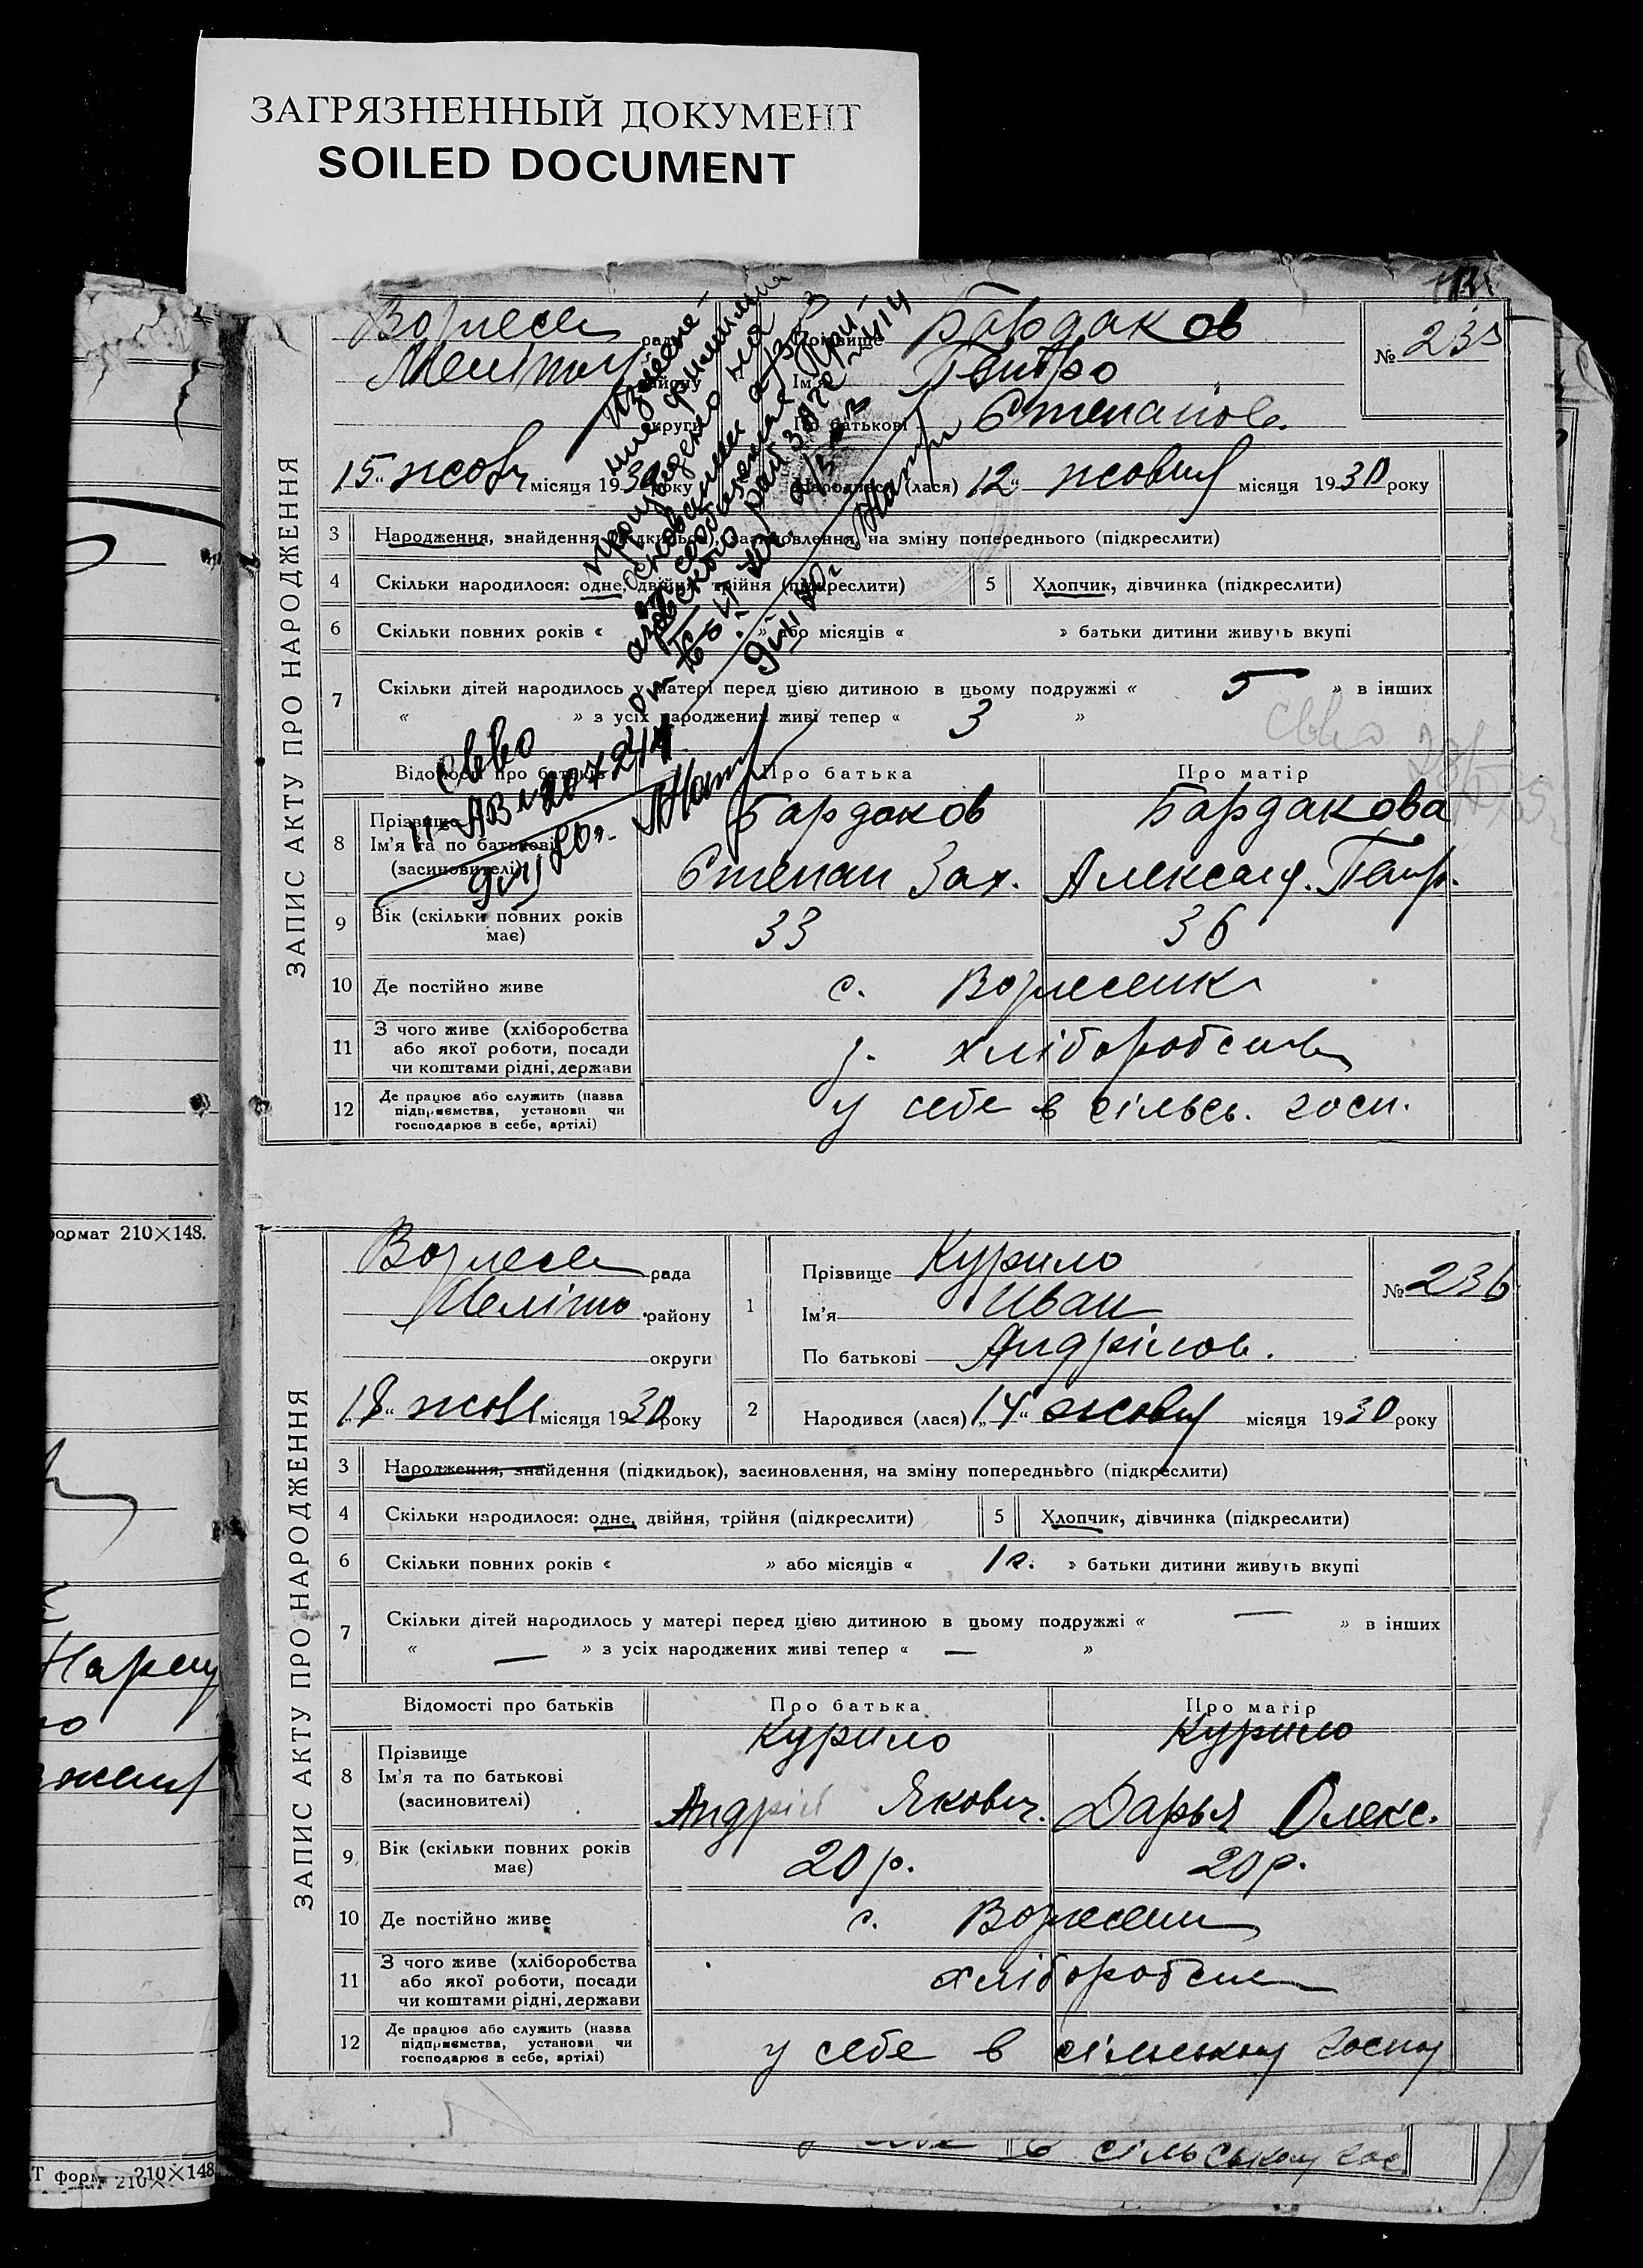 ЗАГРЯЗНЕННЫЙ ДОКУМЕНТ
SOILED DOCUMENT
ЗАПИС АКТУ ПРО НАРОДЖЕННЯ
Вознесен рада
Меліт району
округи
Прізвище Бардаков
Ім'я
По батькові Степанов.
№ 235
15 жовт місяця 1930 року
Народився (лася) „12“ жовтня місяця 1930 року
3 Народження, знайдення (підкидьок), засиновлення, на зміну попереднього (підкреслити)
4 Скільки народилося: одне, двійня, трійня (підкреслити) 5 Хлопчик, дівчинка (підкреслити)
6 Скільки повних років « » або місяців « » батьки дитини живуть вкупі
7 Скільки дітей народилось у матері перед цією дитиною в цьому подружжі « 5 » в інших
« » з усіх народжених живі тепер « 3 »
Відомості про батьків Про батька Про матір
8 Прізвище Бардаков Бардакова
Ім'я та по батькові
(засиновителі) Степан Зах. Александ. Петр.
9 Вік (скільки повних років має) 33 36
10 Де постійно живе с. Вознесенк
11 З чого живе (хліборобства
або якої роботи, посади
чи коштами рідні, держави хліборобств
12 Де працює або служить (назва
підприємства, установи чи
господарює в себе, артілі) у себе в сільсь. госп.
изменение фамилии
произведено на
основании
сообщения
свво
ормат 210×148.
ЗАПИС АКТУ ПРО НАРОДЖЕННЯ
Вознесен рада
Меліто. району
округи
1 Прізвище Курило
Ім'я Иван
По батькові Андрійов.
№ 236
„18“ жовт місяця 1930 року
2 Народився (лася) „14“ жовтня місяця 1930 року
3 Народження, знайдення (підкидьок), засиновлення, на зміну попереднього (підкреслити)
4 Скільки народилося: одне, двійня, трійня (підкреслити) 5 Хлопчик, дівчинка (підкреслити)
6 Скільки повних років « » або місяців « 1 г. » батьки дитини живуть вкупі
7 Скільки дітей народилось у матері перед цією дитиною в цьому подружжі « — » в інших
« — » з усіх народжених живі тепер « — »
Відомості про батьків Про батька Про матір
8 Прізвище Курило Курило
Ім'я та по батькові
(засиновителі) Андрій Якович. Дарья Олекс.
9 Вік (скільки повних років має) 20 р. 20 р.
10 Де постійно живе с. Вознесен
11 З чого живе (хліборобства
або якої роботи, посади
чи коштами рідні, держави хліборобств
12 Де працює або служить (назва
підприємства, установи чи
господарює в себе, артілі) у себе в сільському госпо
сільському гос
210×148